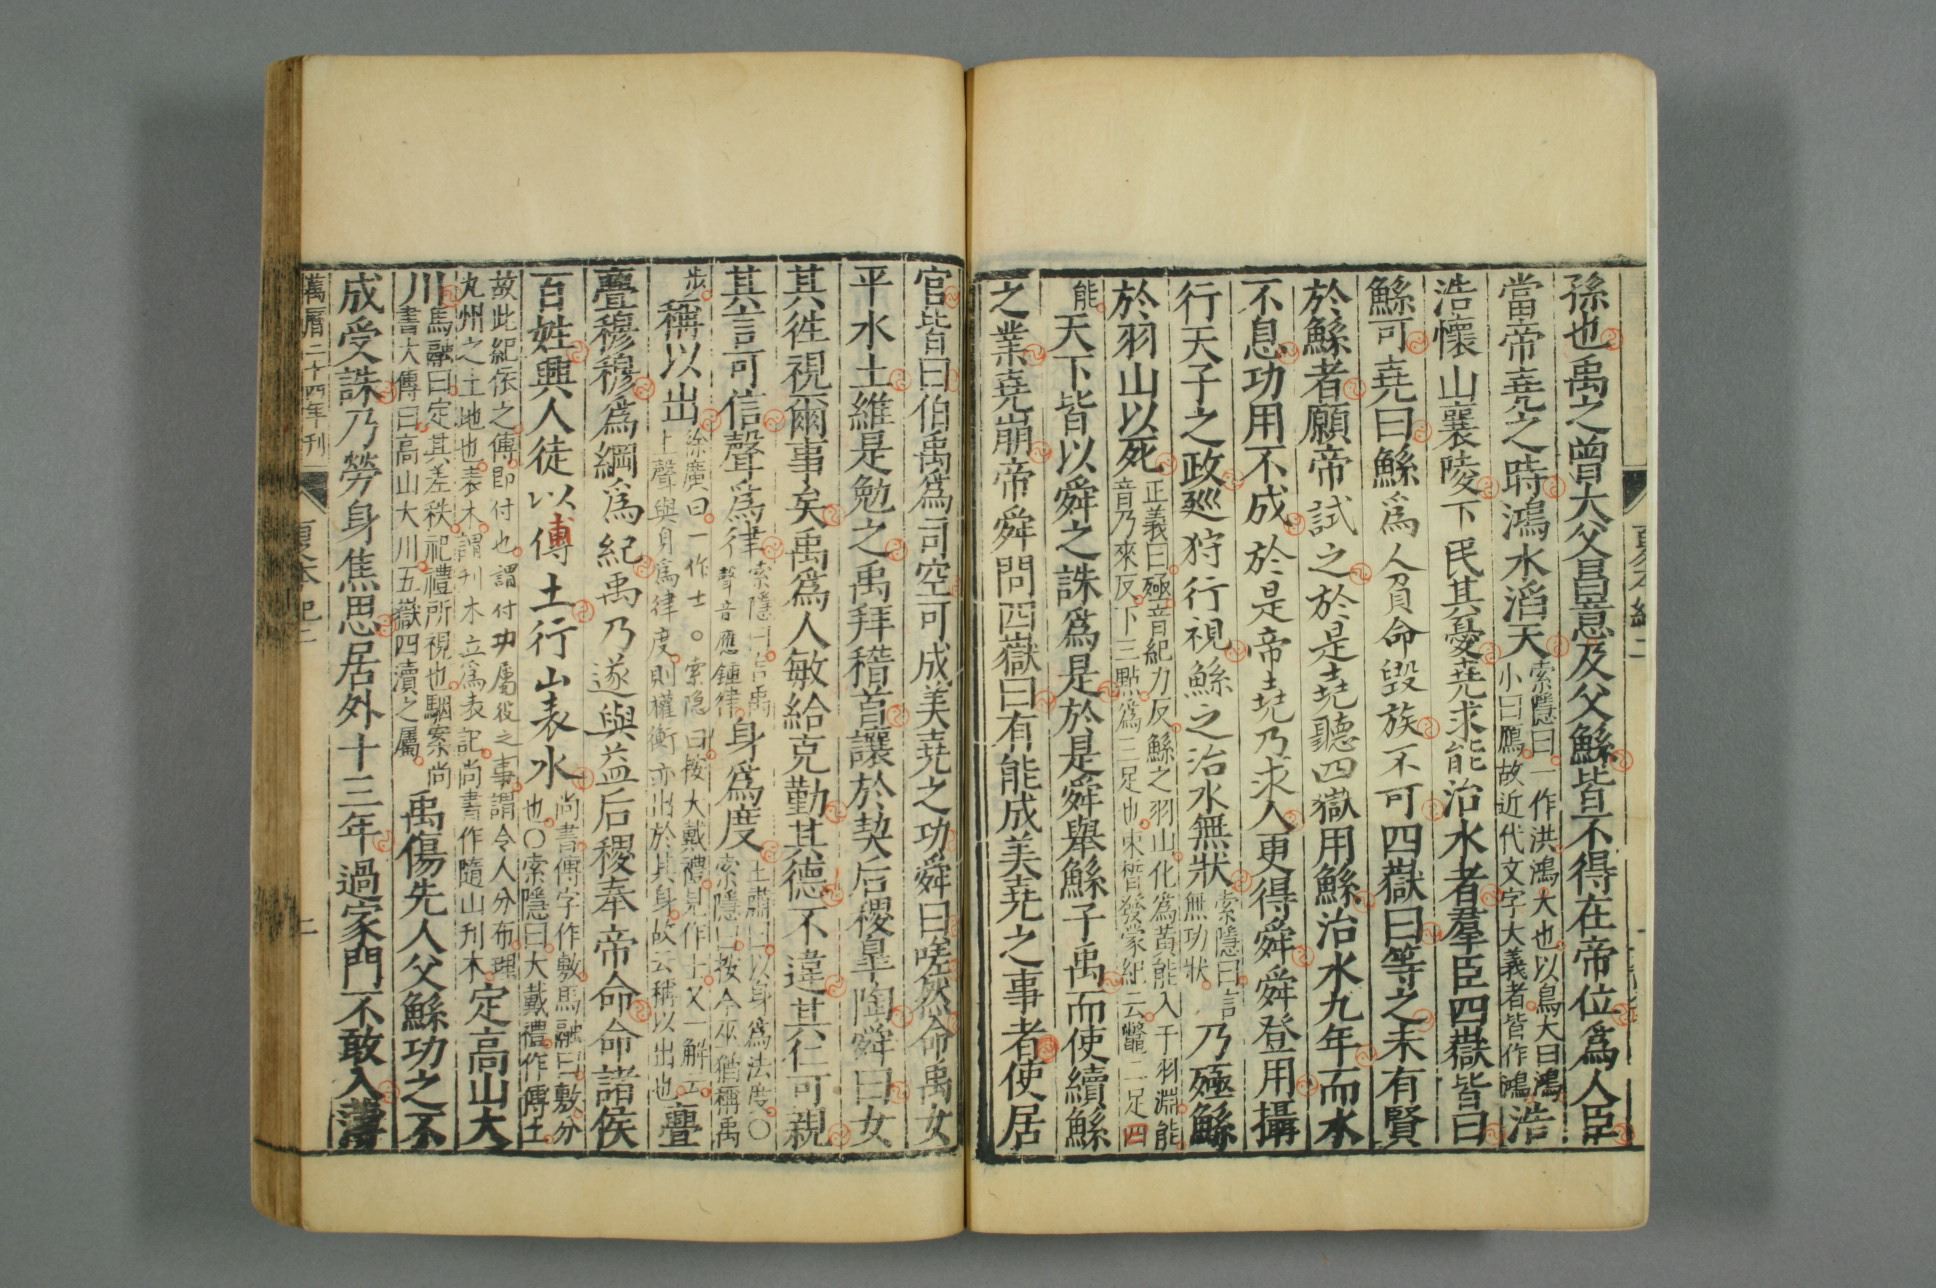 孫也禹之曾大父昌意及父鯀皆不得在帝位爲人臣
當帝堯之時鴻水滔天索隱曰一作洪鴻大也以鳥大曰鴻小曰鴈故近代文字大義者皆作鴻浩
浩懷山襄陵下民其憂堯求能治水者羣臣四嶽皆曰
鯀可堯曰鯀爲人負命毀族不可四嶽曰等之未有賢
於鯀者願帝試之於是堯聽四嶽用鯀治水九年而水
不息功用不成於是帝堯乃求人更得舜舜登用攝
行天子之政巡狩行視鯀之治水無狀索隱曰言無功狀乃殛鯀
於羽山以死正義曰殛音紀力反鯀之羽山化爲黃能入于羽淵能音乃來反下三點爲三足也束皙發蒙紀云鼈三足四
能天下皆以舜之誅爲是於是舜舉鯀子禹而使續鯀
之業堯崩帝舜問四嶽曰有能成美堯之事者使居
官皆曰伯禹爲司空可成美堯之功舜曰嗟然命禹女
平水土維是勉之禹拜稽首讓於契后稷皋陶舜曰女
其徃視爾事矣禹爲人敏給克勤其德不違其仁可親
其言可信聲爲律索隱曰言禹聲音應鍾律身爲度王肅曰以身爲法度〇索隱曰按今巫猶稱禹
步稱以出徐廣曰一作士〇索隐曰按大戴禮見作士又一解云上聲與身爲律度則權衡亦出於其身故云稱以出也亹
亹穆穆爲綱爲紀禹乃遂與益后稷奉帝命命諸侯
百姓興人徒以傅土行山表木尚書傅字作敷馬融曰敷分也〇索隱曰大戴禮作傅土
故此紀依之傅即付也謂付功屬役之事謂令人分布理九州之土地也表木謂刊木立爲表記尚書作隨山刊木定高山大
川馬融曰定其差秩祀禮所視也駰案尚書大傳曰高山大川五嶽四瀆之屬禹傷先人父鯀功之不
成受誅乃勞身焦思居外十三年過家門不敢入薄
萬曆二十四年刊
夏本紀二
二